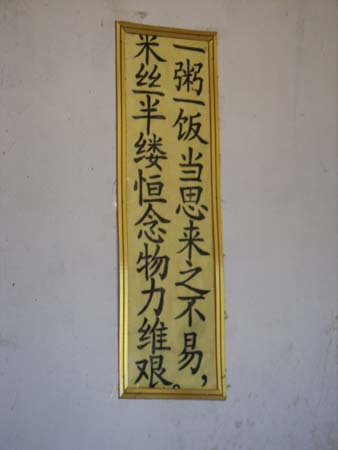 一粥一饭当思来之不易，
米丝半缕恒念物力维艰。